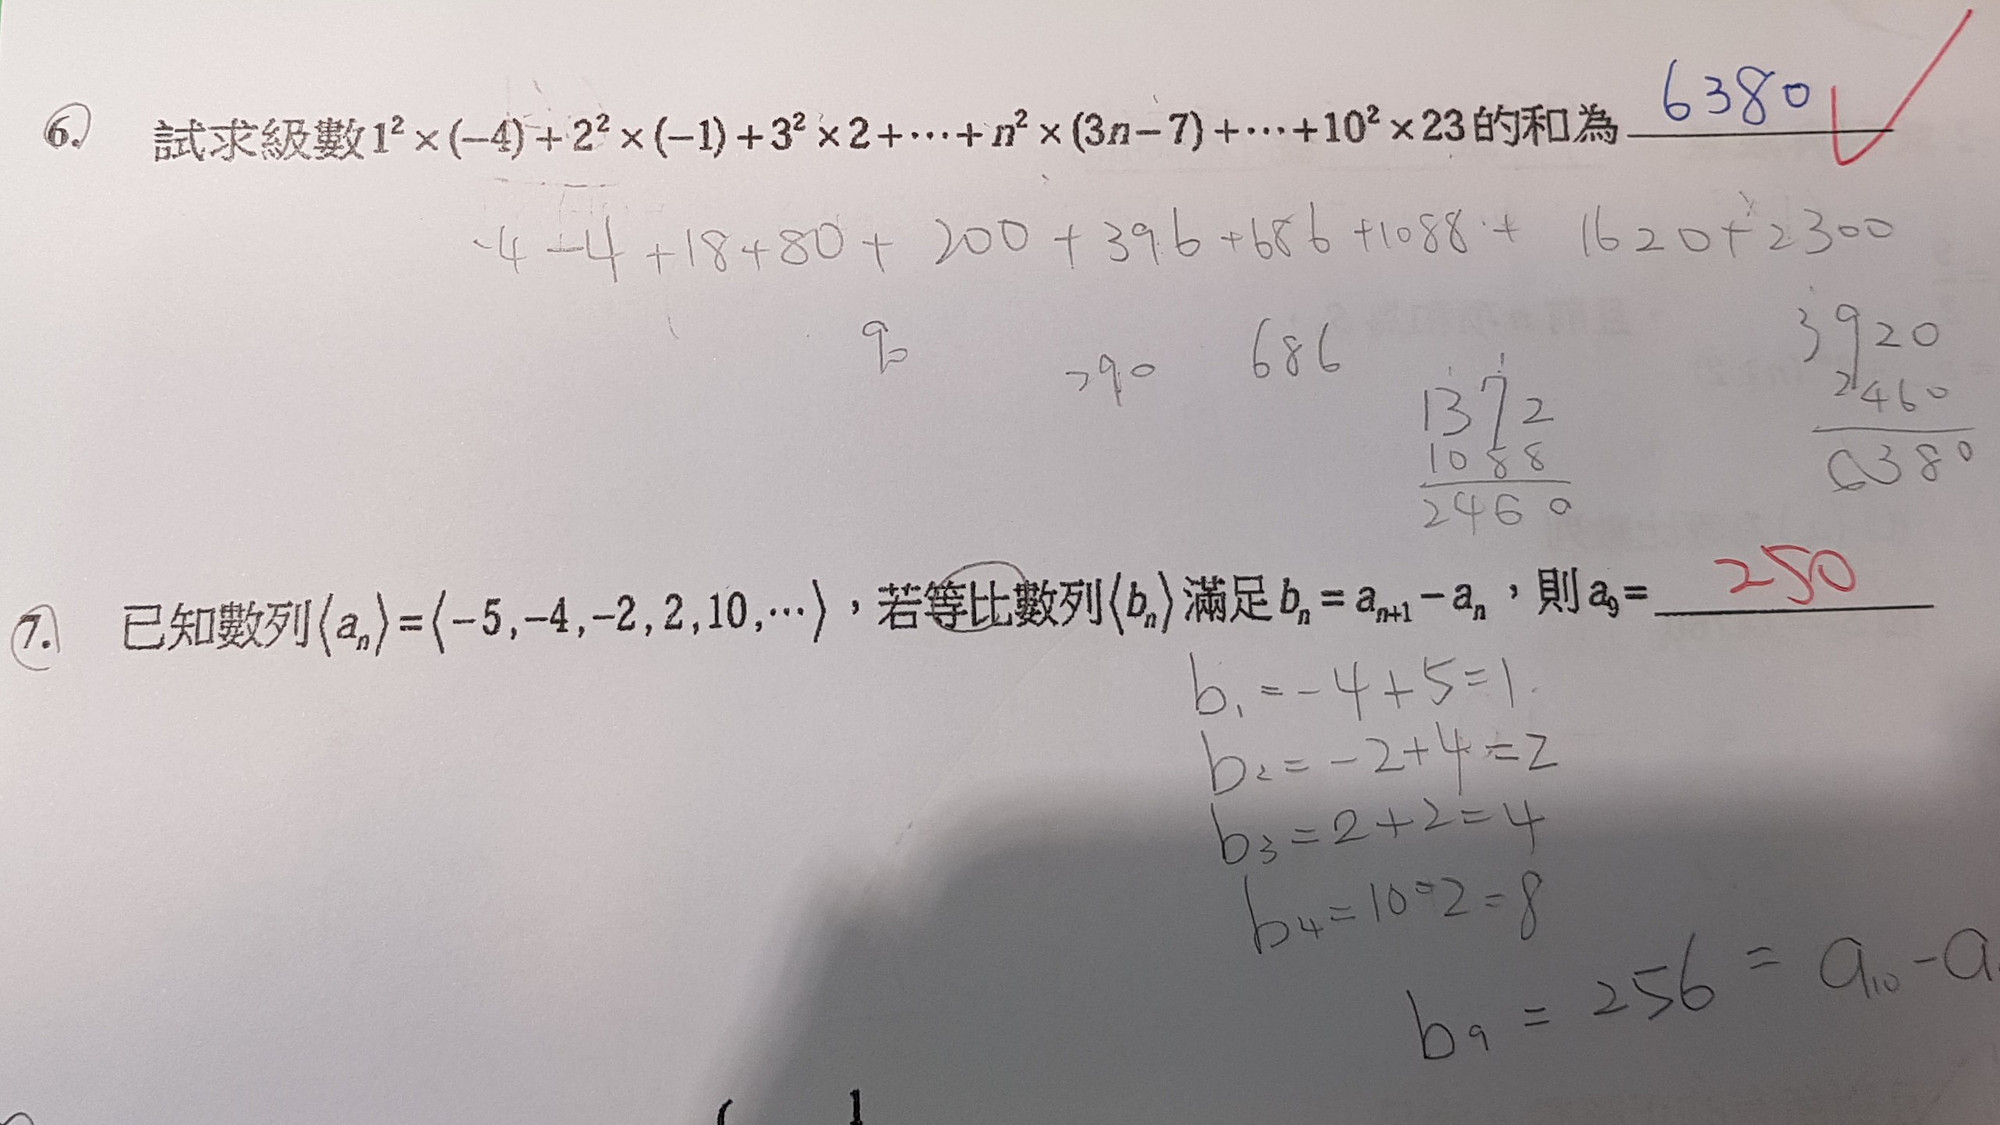 6. 試求級數1²×(−4)+2²×(−1)+3²×2+⋯+n²×(3n−7)+⋯+10²×23的和為 6380
-4-4+18+80+200+396+686+1088+1620+2300
90 290 686
1372
1088
2460
3920
2460
6380
7. 已知數列⟨aₙ⟩=⟨−5,−4,−2,2,10,⋯⟩,若等比數列⟨bₙ⟩滿足bₙ=aₙ₊₁−aₙ,則a₉= 250
b₁=-4+5=1
b₂=-2+4=2
b₃=2+2=4
b₄=10-2=8
b₉=256=a₁₀-a